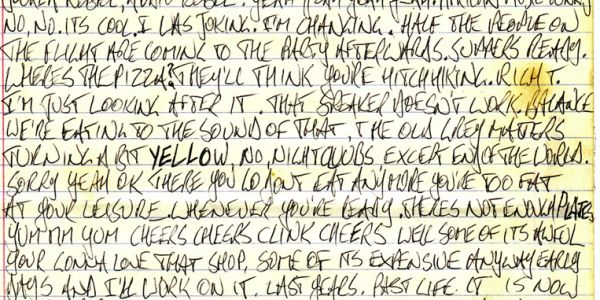 NO, NO. ITS COOL. I WAS JOKING. I'M CHANGING. HALF THE PEOPLE ON
THE FLIGHT ARE COMING TO THE PARTY AFTERWARDS. SUPPERS READY.
WHERES THE PIZZA? THEY'LL THINK YOU'RE HITCHHIKING. RIGHT.
I'M JUST LOOKING AFTER IT. THAT SPEAKER DOESN'T WORK. BALANCE
WE'RE EATING TO THE SOUND OF THAT. THE OLD GREY MATTERS
TURNING A BIT YELLOW, NO, NIGHTCLUBS EXCEPT END OF THE WORLD.
SORRY YEAH OK THERE YOU GO DON'T EAT ANYMORE YOU'RE TOO FAT
AT YOUR LEISURE_ WHENEVER YOU'RE READY. THERES NOT ENOUGH PLATES
YUM MM YUM CHEERS CHEERS CLINK CHEERS WELL SOME OF ITS AWFUL
YOUR GONNA LOVE THAT SHOP. SOME OF ITS EXPENSIVE ANYWAY EARLY
DAYS AND I'LL WORK ON IT. LAST YEARS. PAST LIFE. IT IS NOW